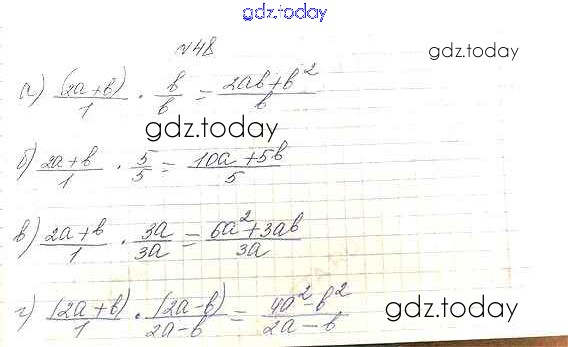 gdz.today
№48
gdz.today
а) (2a+b)/1 · b/b = 2ab+b²/b
gdz.today
б) 2a+b/1 · 5/5 = 10a+5b/5
в) 2a+b/1 · 3a/3a = 6a²+3ab/3a
г) (2a+b)/1 · (2a-b)/2a-b = 4a²-b²/2a-b
gdz.today